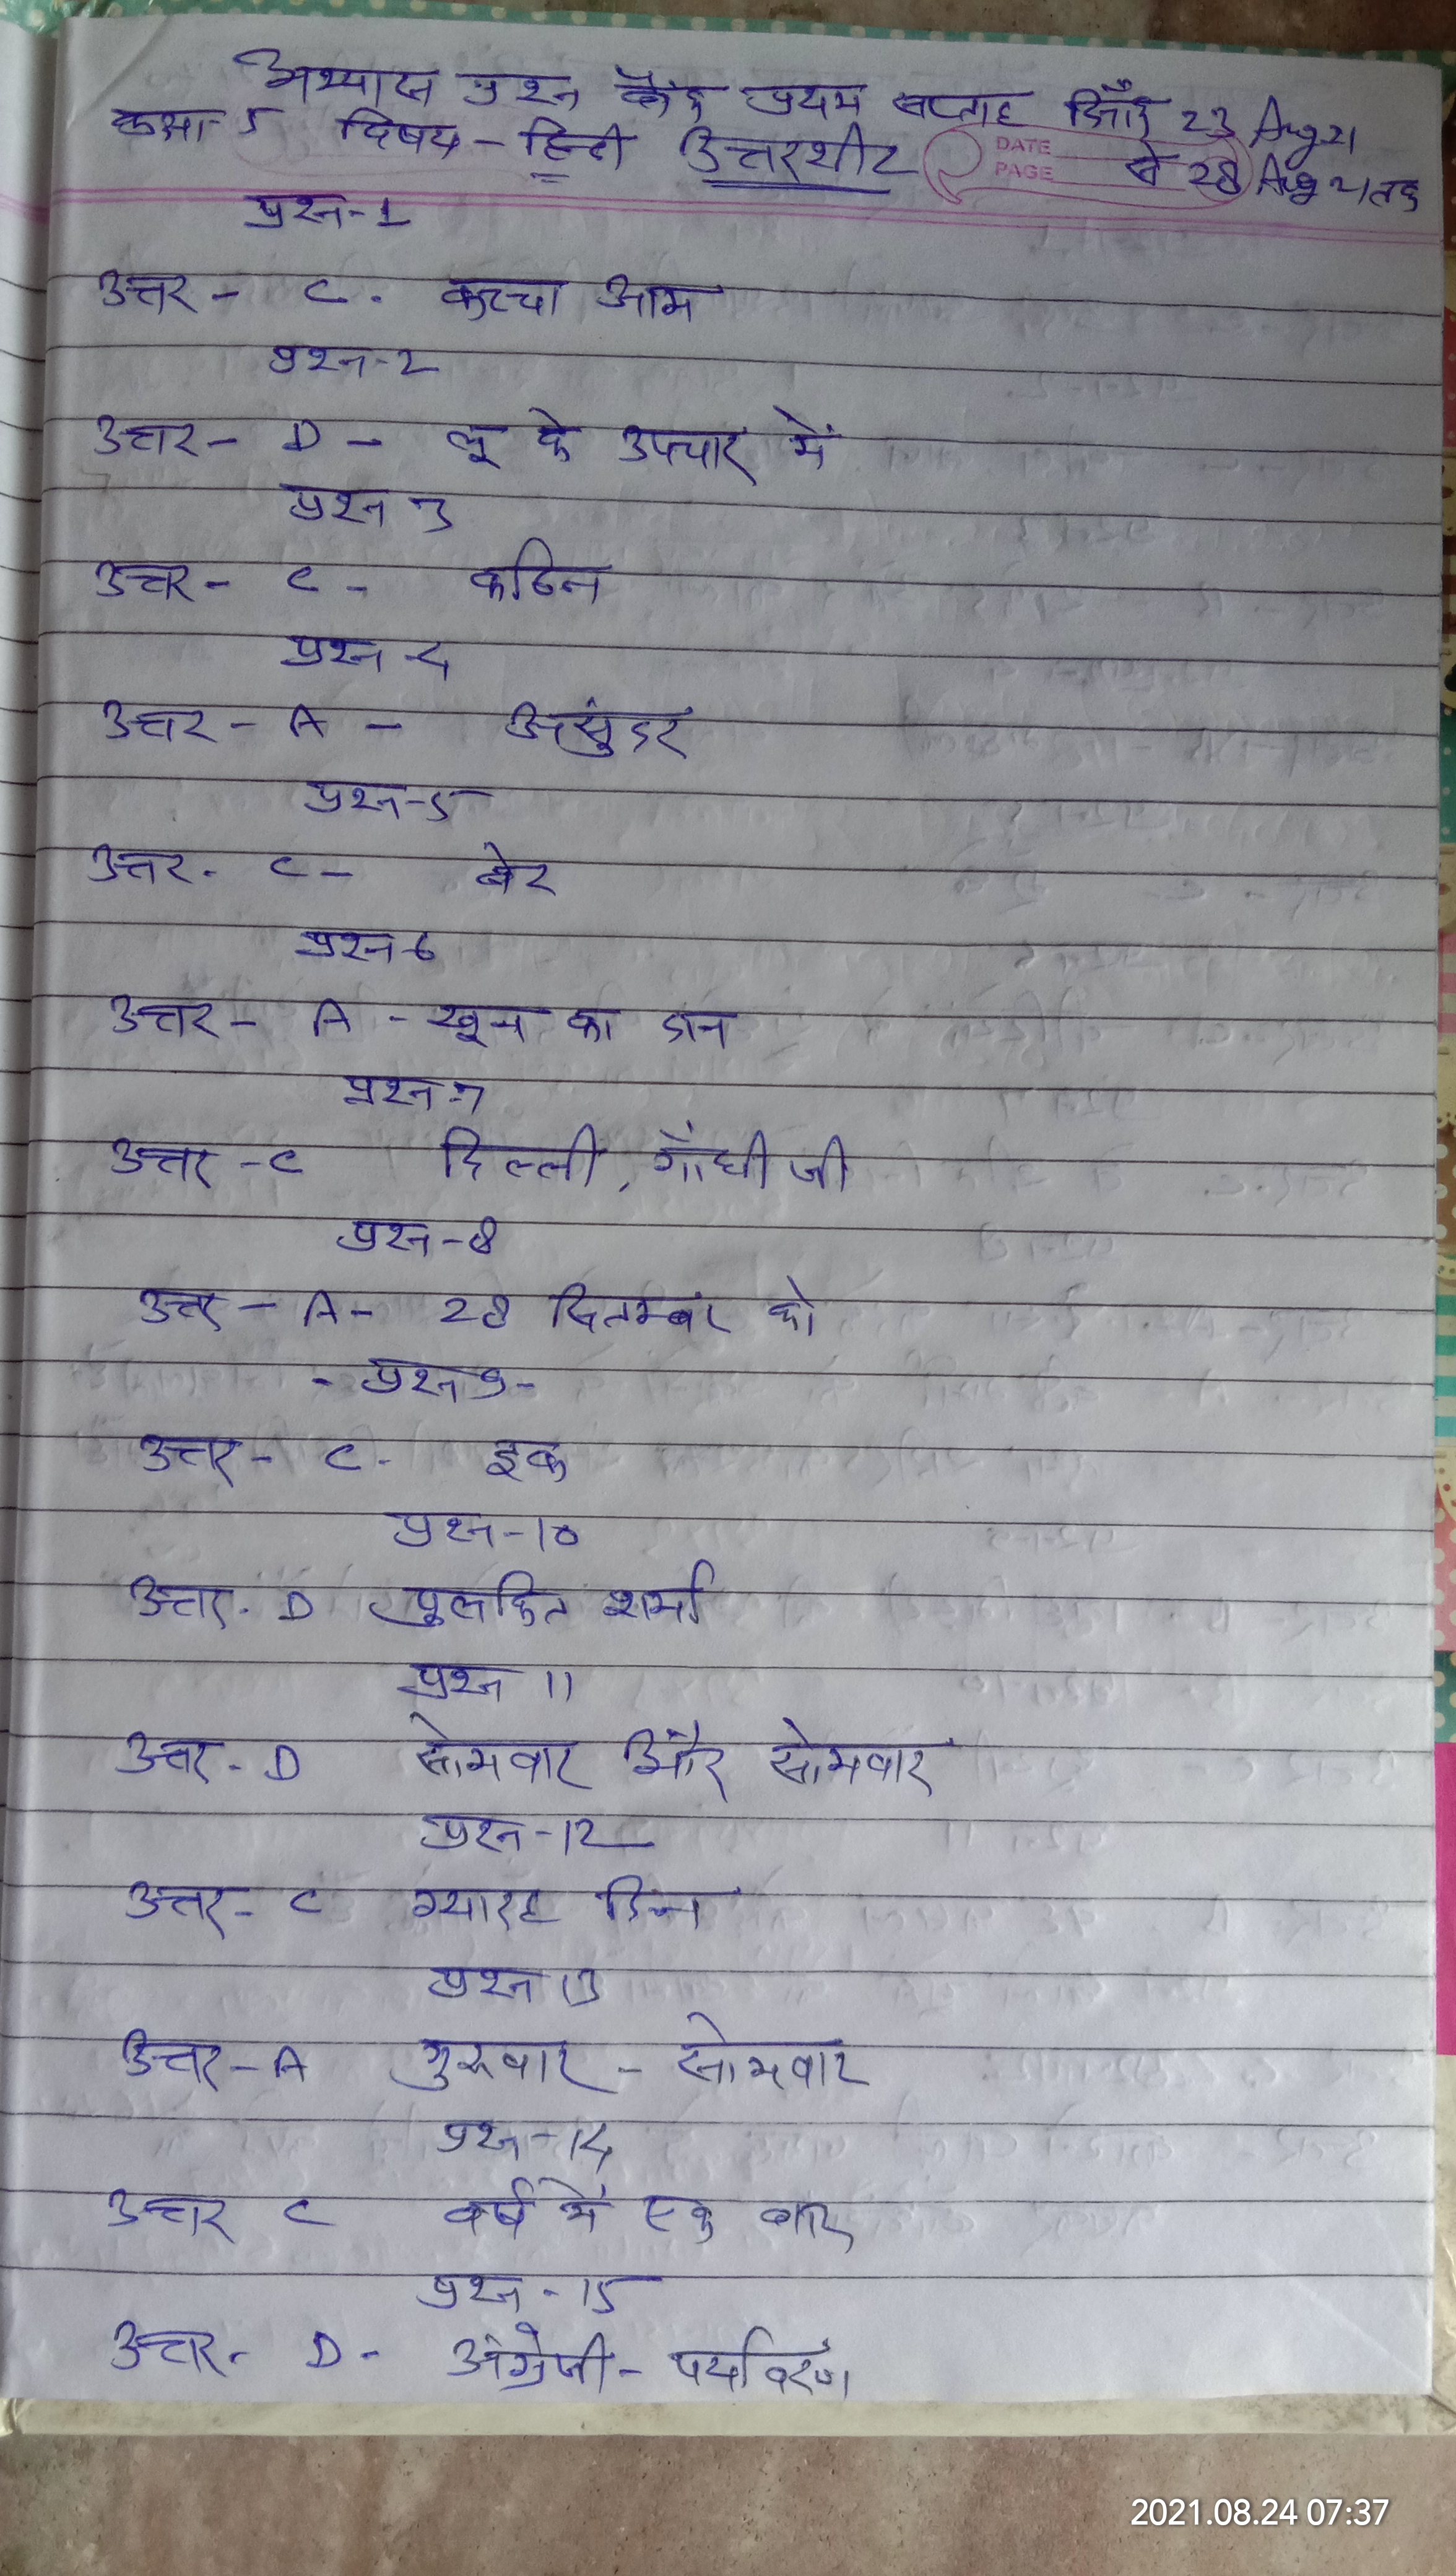 अभ्यास प्रश्न प्रथम सप्ताह 23 Aug 21
कक्षा 5 विषय - हिन्दी उत्तरशीट से 28 Aug 21 तक
DATE
PAGE
प्रश्न-1
उत्तर - C. कच्चा आम
प्रश्न-2
उत्तर - D - लू के उपचार में
प्रश्न 3
उत्तर - C - कठिन
प्रश्न-4
उत्तर - A - असुंदर
प्रश्न-5
उत्तर - C - बेर
प्रश्न-6
उत्तर - A - खून का दान
प्रश्न-7
उत्तर - C दिल्ली, गाँधी जी
प्रश्न-8
उत्तर - A - 28 सितम्बर को
- प्रश्न 9 -
उत्तर - C - इक
प्रश्न-10
उत्तर. D पुलकित शर्मा
प्रश्न 11
उत्तर - D सोमवार और सोमवार
प्रश्न-12
उत्तर - C ग्यारह दिन
प्रश्न 13
उत्तर - A गुरुवार - सोमवार
प्रश्न-14
उत्तर C वर्ष में एक बार
प्रश्न-15
उत्तर - D - अंग्रेजी - पर्यावरण
2021.08.24 07:37